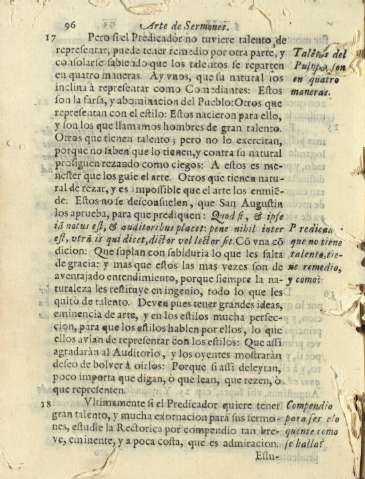 96 Arte de Sermones.
17 Pero si el Predicador no tuviere talento, de
representar, puede tener remedio por otra parte, y
consolarse sabiendo que los talentos se reparten
en quatro maneras. Ay vnos, que su natural los
inclina à representar como Comediantes: Estos
son la farsa, y abominacion del Pueblo: Otros que
representan con el estilo: Estos nacieron para ello,
y son los que llamamos hombres de gran talento.
Otros que tienen talento; pero no lo exercitan,
porque no saben que lo tienen, y contra su natural
prosiguen rezando como ciegos: A estos es me-
nester que los guie el arte. Otros que tienen natu-
ral de rezar, y es impossible que el arte los enmié-
de. Estos no se desconsuelen, que San Augustin
los aprueba, para que prediquen: Quod si, & ipse
iã notus est, & auditoribus placet: pene nihil inter
est, vtrũ is qui dicet, dictor vel lector sit. Cõ vna cõ
dicion: Que suplan con sabiduria lo que les falta
de gracia; y mas que estos las mas vezes son de
aventajado entendimiento, porque siempre la na-
turaleza les restituye en ingenio, todo lo que les
quitò de talento. Deven pues tener grandes ideas,
eminencia de arte, y en los estilos mucha perfec-
cion, para que los estilos hablen por ellos, lo que
ellos avian de representar con los estilos: Que assi
agradaràn al Auditorio, y los oyentes mostraràn
deseo de bolver à oirlos: Porque si assi deleytan,
poco importa que digan, ò que lean, que rezen, ò
que representen.
18 Vltimamente si el Predicador quiere tener
gran talento, y mucha exornacion para sus sermo-
nes, estudie la Rectorica por compendio tan bre-
ve, eminente, y a poca costa, que es admiracion.
Estu-
Talẽtos del
Pulpito, son
en quatro
maneras.
Predicador
que no tiene
talento, tie-
ne remedio,
y como:
Compendio
para ser elo
quente como
se halla?